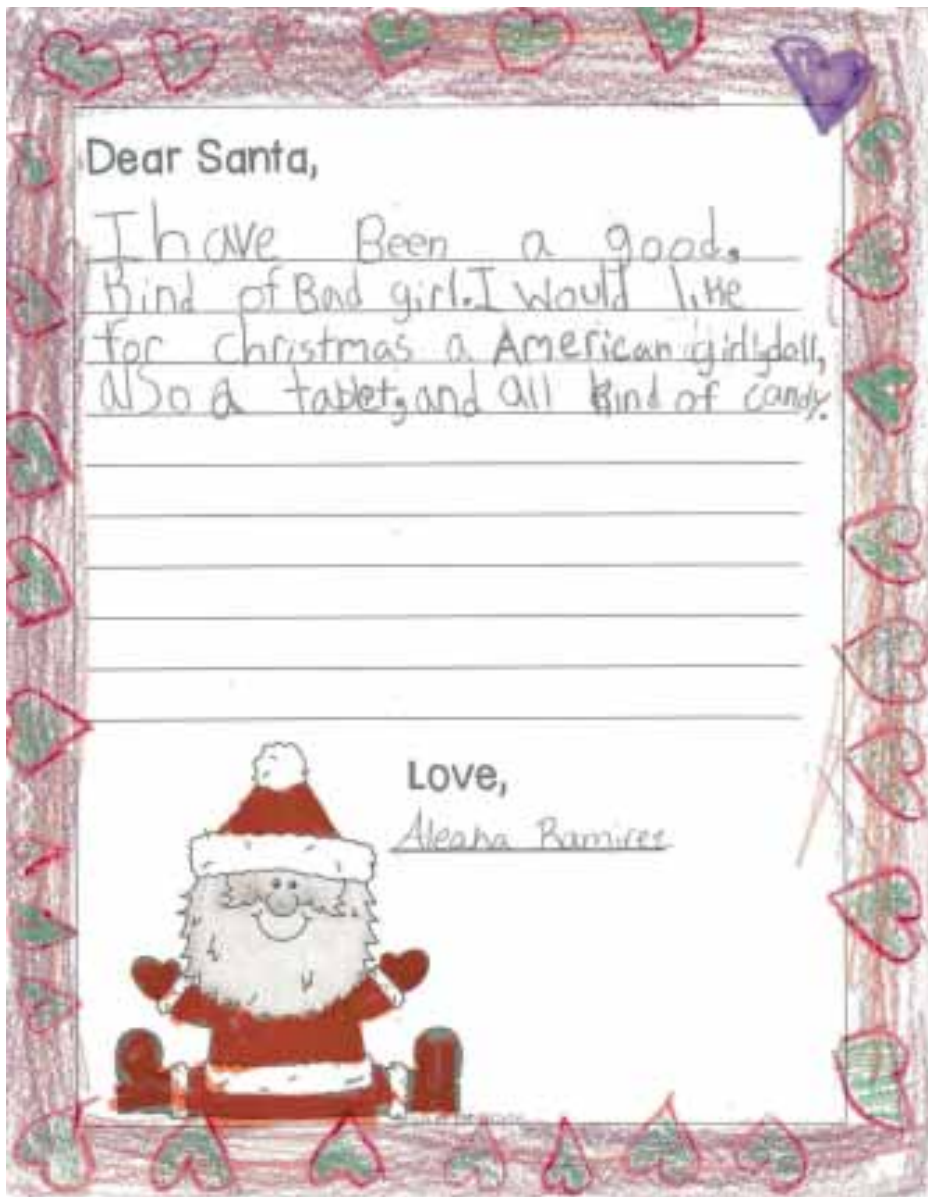 Dear Santa,
I have Been a good.
Kind of Bad girl. I would like
for christmas a American girl doll,
also a tablet, and all kind of candy.
Love,
Aleana Ramirez